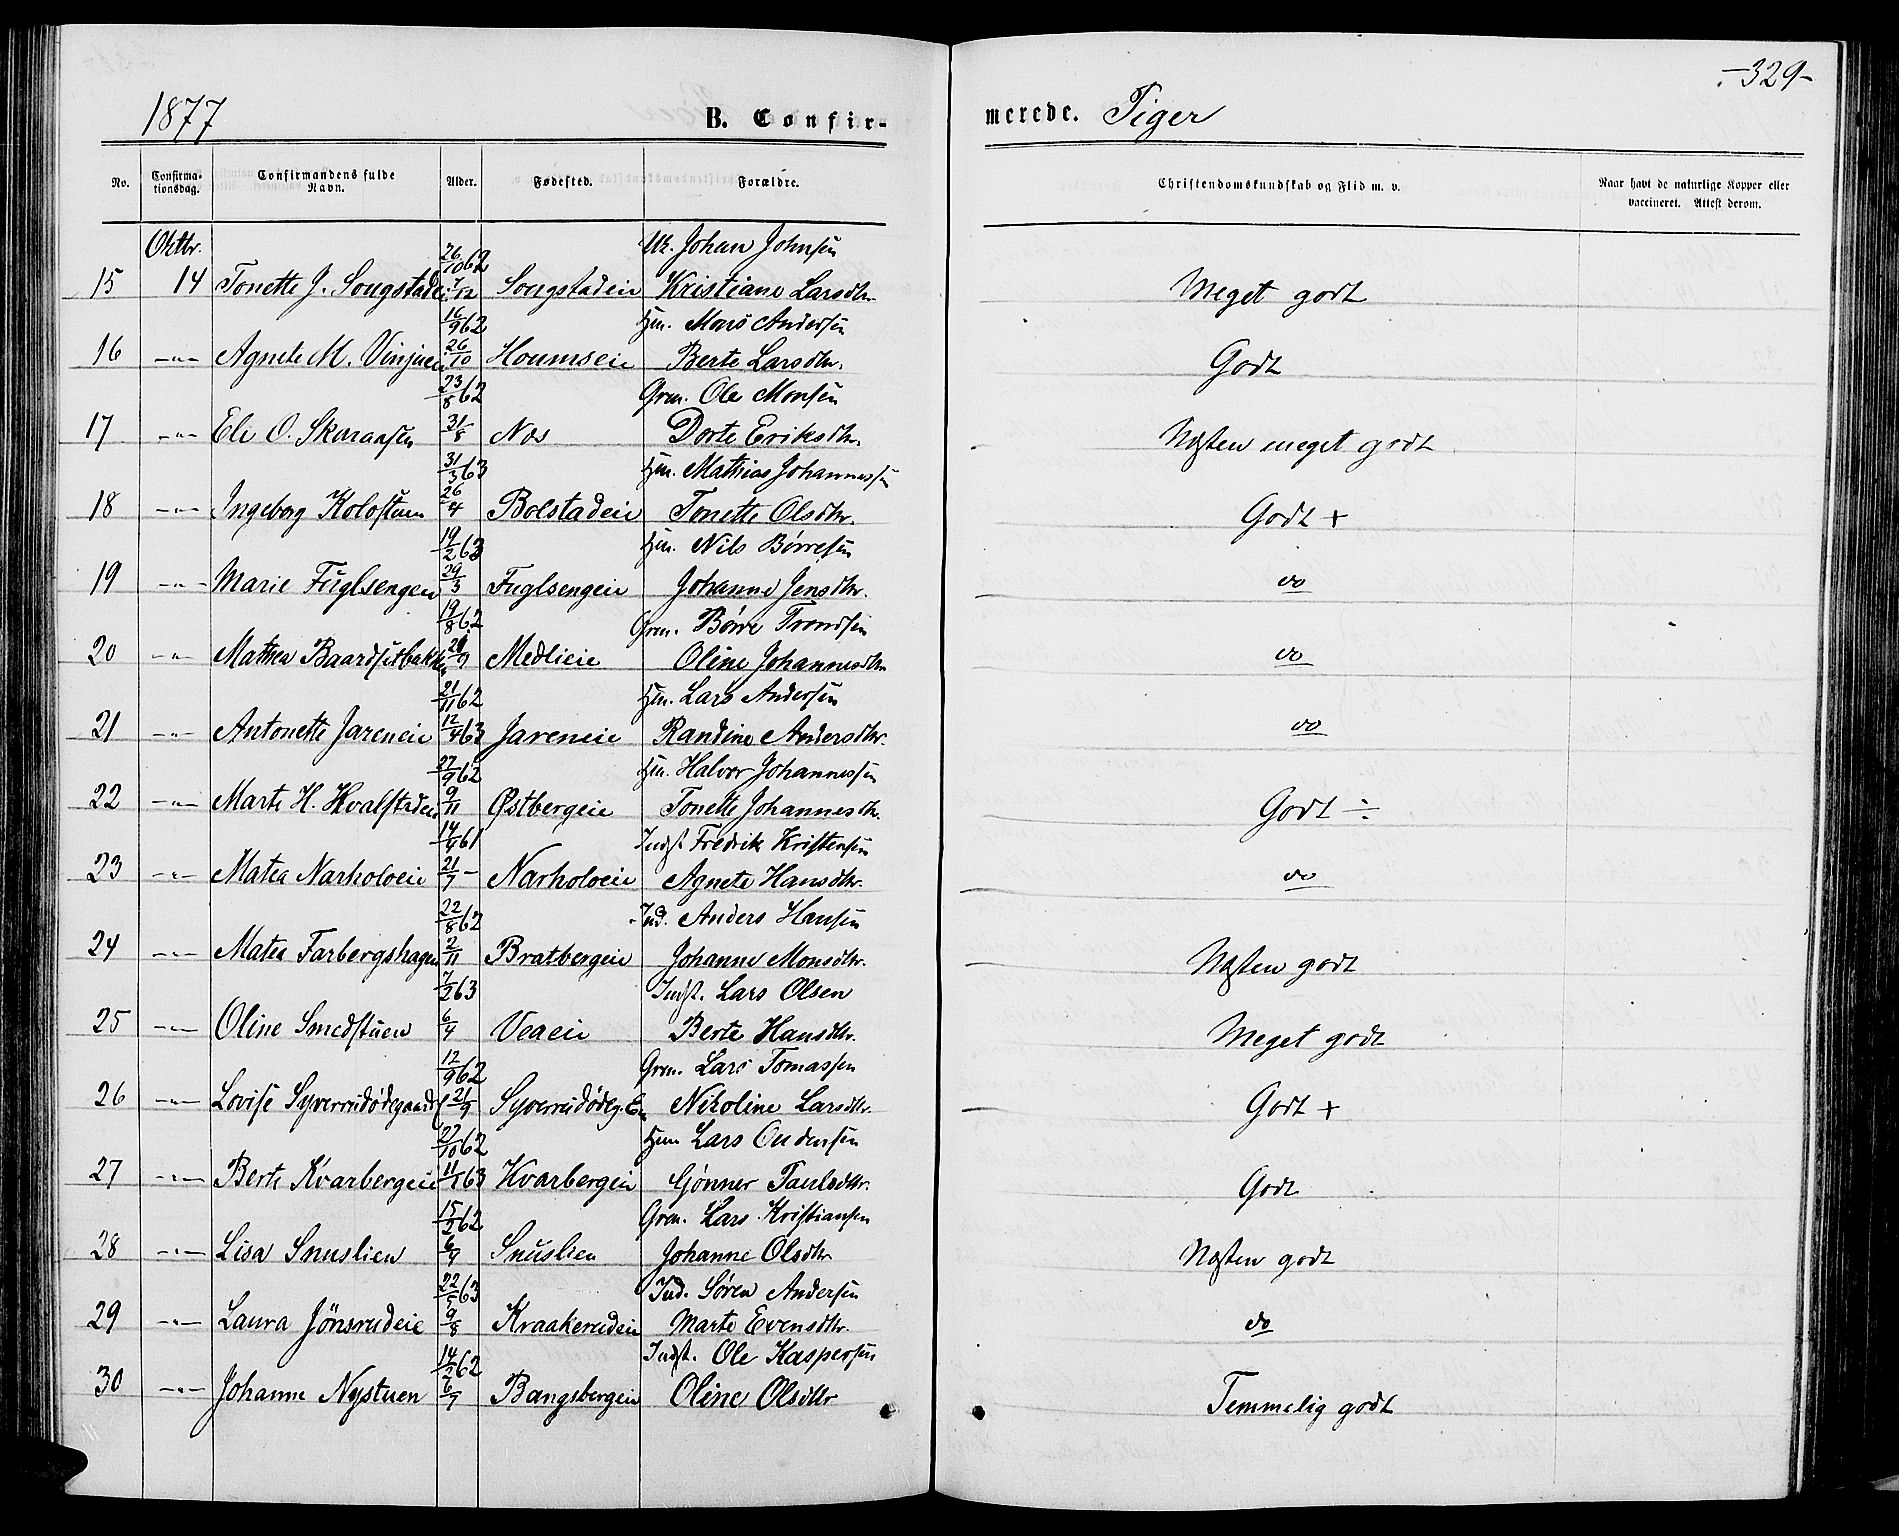 -329-
1877 B. Confir- merede. Piger
No. Confirma- tionsdag. Confirmandens fulde Navn. Alder. Fødested. Forældre. Christendomskundskab og Flid m. v. Naar havt de naturlige Kopper eller vaccineret. Attest derom.
Oktbr. 26/10 62 Johan Johnsen
15 14 Tonette J. Sougstadei 7/12 Sougstadeie Kristiane Larsdtr. Meget godt
16/9 62 Hm. Mons Andersen
16 -"- Agnete M. Vinjuei 26/10 Houmseie Berte Larsdtr. Godt
23/8 62 Grm. Ole Monsen
17 -"- Eli O. Skaraasen 31/8 Nos Dorte Eriksdtr. Næsten meget godt
31/3 63 Hm. Mathias Johannessen
18 -"- Ingeborg Kolostuen 26/4 Bolstadeie Tonette Olsdtr. Godt +
19/2 63 Hm. Nils Børresen
19 -"- Marie Fuglsengen 29/3 Fuglsengeie Johanne Jensdtr. do
19/8 62 Grm. Børre Trondsen
20 -"- Mathea Baardsetbakken 21/9 Medlieie Oline Johannesdtr. do
21/11 62 Hm. Lars Andersen
21 -"- Antonette Jareneie 12/4 63 Jareneie Randine Andersdtr. do
27/9 62 Hm. Halvor Johannessen
22 -"- Marte H. Hvalstadeie 9/11 Østbergeie Tonette Johannesdtr. Godt ÷
14/4 61 Indst Fredrik Kristensen
23 -"- Matea Narholoeie 21/7 - Narholoeie Agnete Hansdtr. do
22/8 62 Ind. Anders Hansen
24 -"- Matea Farbergshagen 2/11 Bratbergeie Johanne Monsdtr. Næsten godt
7/2 63 Indst. Lars Olsen
25 -"- Oline Smedstuen 6/4 Veaeie Berte Hansdtr. Meget godt
12/9 62 Grm. Lars Tomassen
26 -"- Lovise Syverrudødegaard 21/9 Syverrudødeg. En Nikoline Larsdtr. Godt +
27/10 62 Hm Lars Oudensen
27 -"- Berte Kvarbergeie 11/1 63 Kvarbergeie Gønner Paulsdtr. Godt
15/2 62 Grm. Lars Kristiansen
28 -"- Lisa Snuslien 6/9 Snuslien Johanne Olsdtr Næsten godt
22/5 63 Ind. Søren Andersen
29 -"- Laura Jönsrudeie 9/8 Kraakerudeie Marte Evensdtr. do
14/2 62 Indst. Ole Kaspersen
30 -"- Johanne Nystuen 6/7 Bangsbergeie Oline Olsdtr Temmelig godt